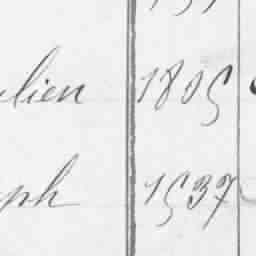 ulien 1805
ph 1537